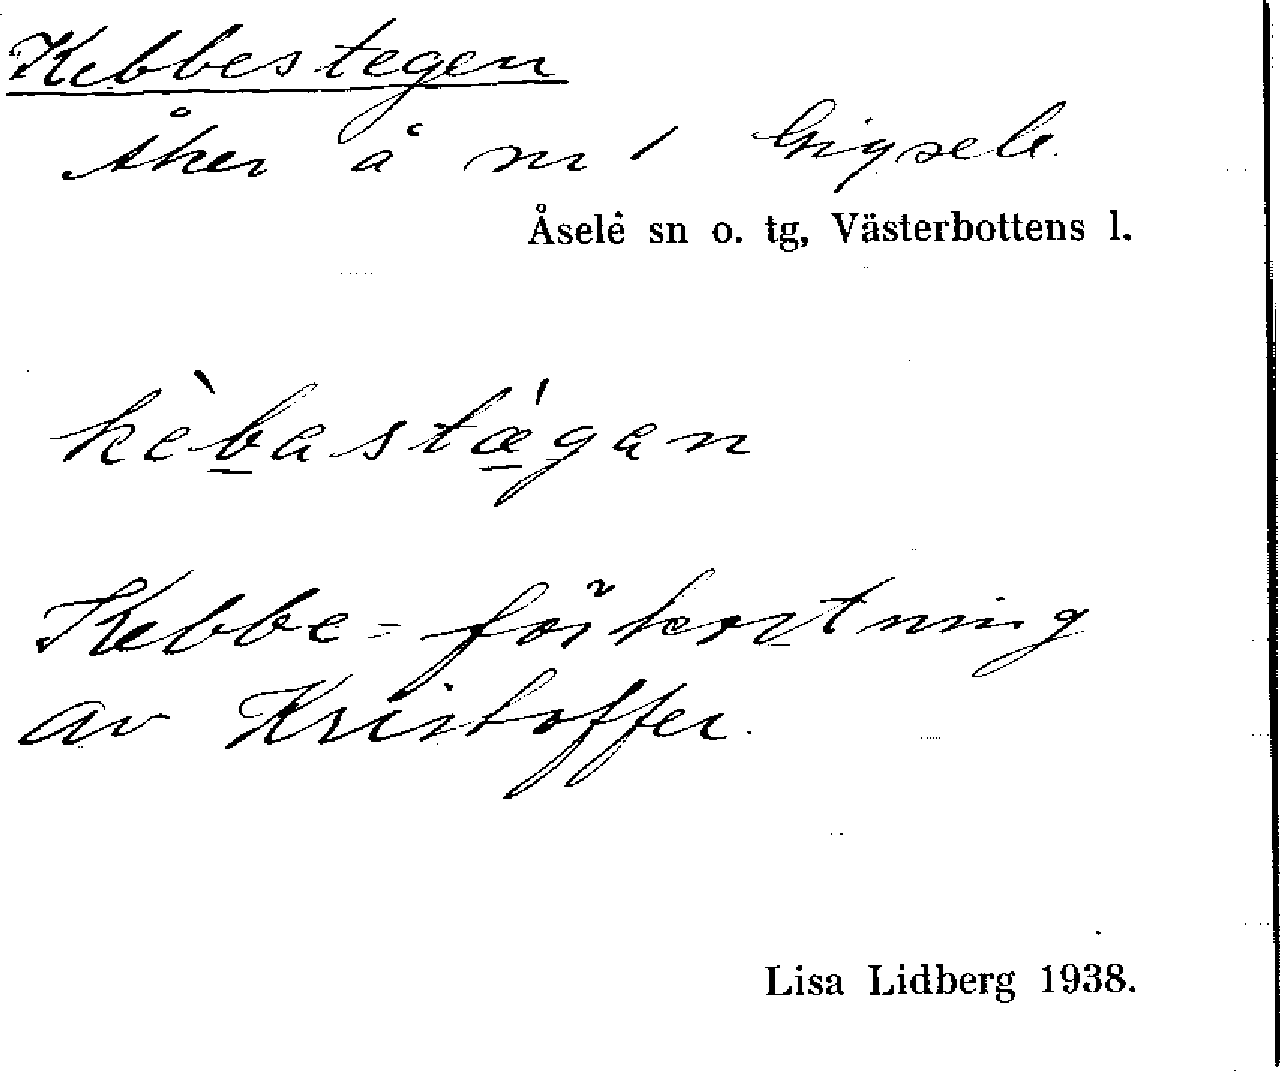 Kebbestegen
Åker å nr 1 Gigsele.
Åsele sn o. tg, Västerbottens l.
kèbastǽgan
Kebbe = förkortning
av Kristoffer.
Lisa Lidberg 1938.